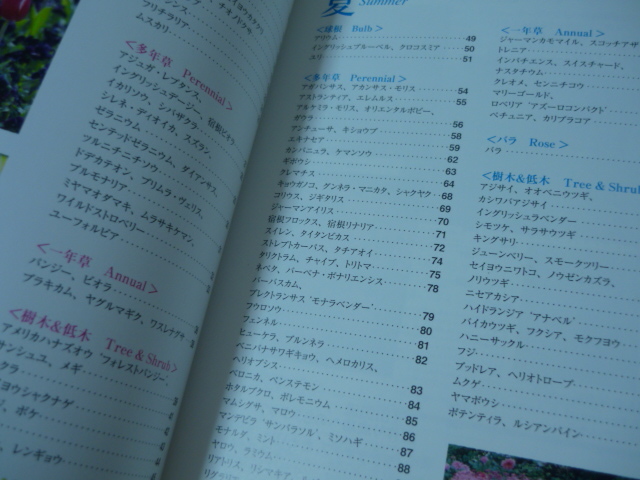 フリチラリア
ムスカリ
<多年草 Perennial>
アジュガ・レプタンス、
イングリッシュデージー、宿根ビオラ
イカリソウ、シバザクラ
シレネ・ディオイカ、スズラン
ゼラニウム
センテッドゼラニウム、ダイアンサス
フルニチニチソウ
ドデカテオン、プリムラ・ヴェリス、
プルモナリア
ミヤマオダマキ、ムラサキケマン、
ワイルドストロベリー
ユーフォルビア
<一年草 Annual>
パンジー、ビオラ
ブラキカム、ヤグルマギク、ワスレナグサ
<樹木&低木 Tree & Shrub>
アメリカハナズオウ 'フォレストパンジー'
サンシュユ、メギ
ボケ
レンギョウ
夏 Summer
<球根 Bulb>
アリウム 49
イングリッシュブルーベル、クロコスミア 50
ユリ 51
<多年草 Perennial>
アガパンサス、アカンサス・モリス 54
アストランティア、エレムルス 55
アルケミラ・モリス、オリエンタルポピー、
ガウラ 56
アンチューサ、キショウブ 58
エキナセア 59
カンパニュラ、ケマンソウ 62
ギボウシ 63
クレマチス 64
キョウガノコ、グンネラ・マニカタ、シャクヤク 68
コリウス、ジギタリス 69
ジャーマンアイリス 70
宿根フロックス、宿根リナリア 71
スイレン、タイタンビカス 72
ストレプトカーパス、タチアオイ 74
タリクトラム、チャイブ、トリトマ 75
ネペタ、バーベナ・ボナリエンシス 78
バーバスカム、
プレクトランサス 'モナラベンダー' 79
フウロソウ 80
フェンネル 81
ヒューケラ、ブルンネラ 82
ベニバナサワギキョウ、ヘメロカリス、
ヘリオプシス 83
ベロニカ、ペンステモン 84
ホタルブクロ、ポレモニウム 85
マムシグサ、マロウ 86
マンデビラ 'サンパラソル'、ミソハギ 87
モナルダ、ミント 88
ヤロウ、ラミウム
リアトリス、リシマキア
<一年草 Annual>
ジャーマンカモマイル、スコッチアザ
トレニア
インパチェンス、スイスチャード、
ナスタチウム
クレオメ、センニチコウ
マリーゴールド、
ロベリア 'アズーロコンパクト'
ペチュニア、カリブラコア
<バラ Rose>
バラ
<樹木&低木 Tree & Shrub
アジサイ、オオベニウツギ、
カシワバアジサイ
イングリッシュラベンダー
シモツケ、サラサウツギ
キングサリ
ジューンベリー、スモークツリー
セイヨウニワトコ、ノウゼンカズラ、
ノリウツギ
ニセアカシア
ハイドランジア 'アナベル'
バイカウツギ、フクシア、モクフヨウ
ハニーサックル
フジ
ブッドレア、ヘリオトロープ
ムクゲ
ヤマボウシ
ポテンティラ、ルシアンパイン